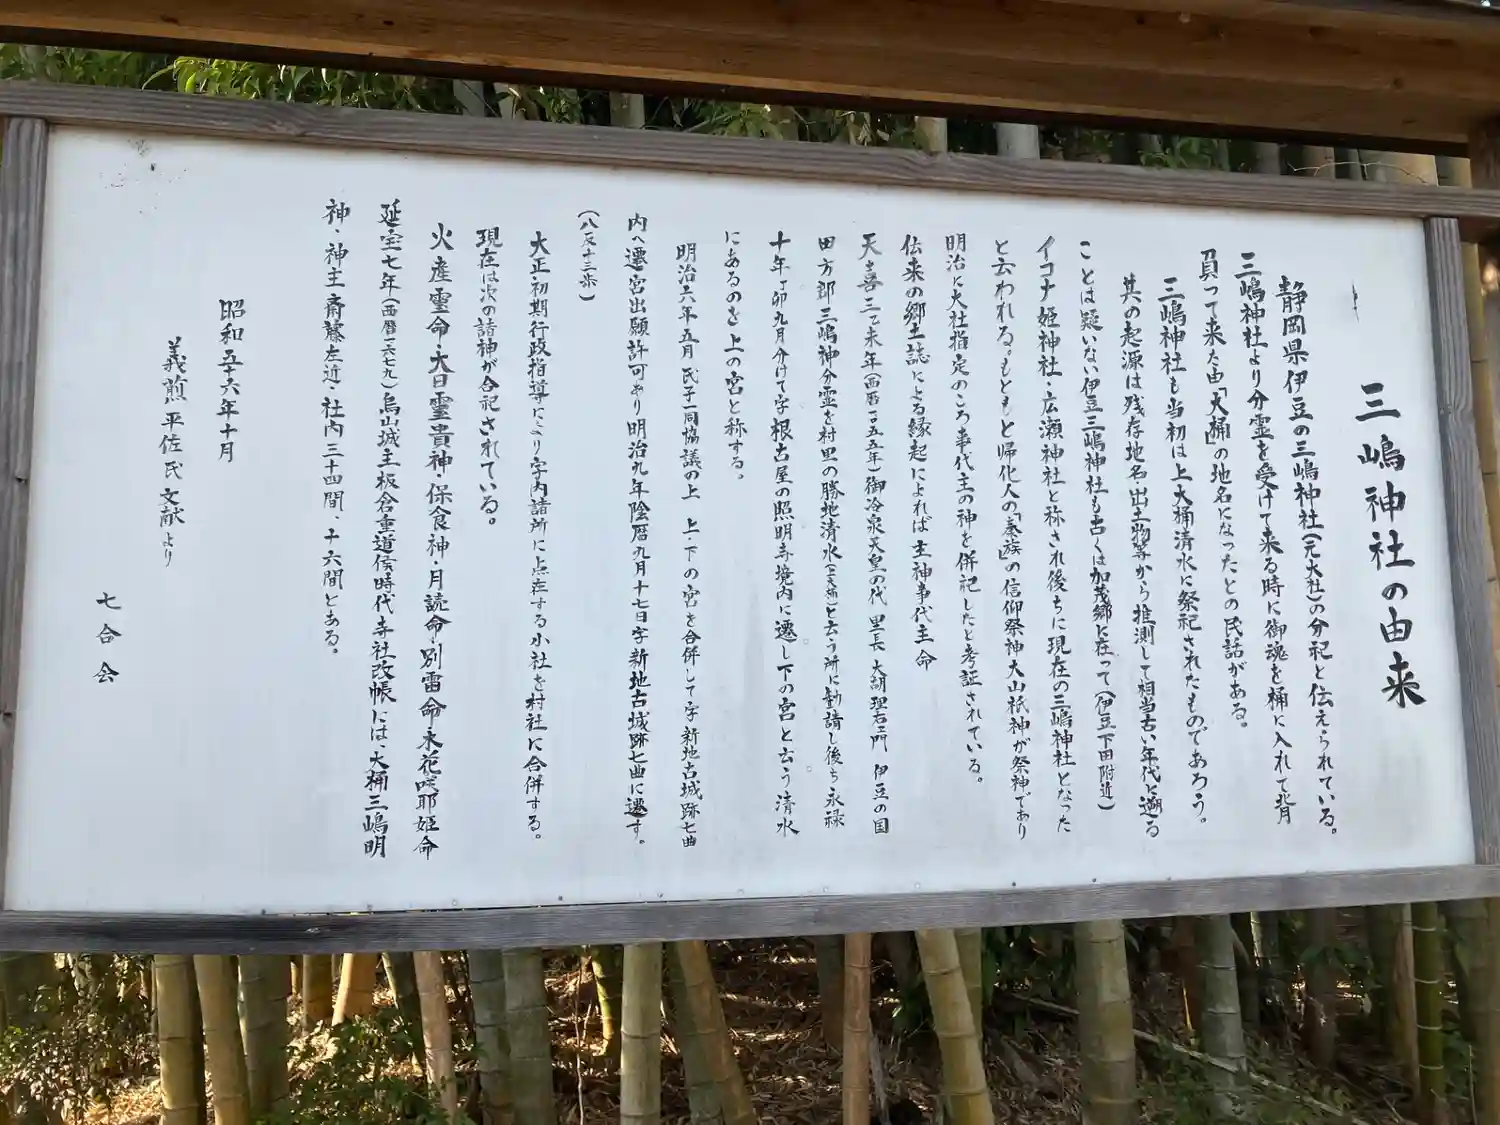 三嶋神社の由来
静岡県伊豆の三嶋神社(元大社)の分祀と伝えられている。
三嶋神社より分霊を受けて来る時に御魂を桶に入れて背月
負って来た由「大桶」の地名になったとの民話がある。
三嶋神社も当初は上大桶清水に祭祀されたものであろう。
其の起源は残存地名・出土物等から推測して相当古い年代に遡る
ことは疑いない伊豆三嶋神社も古くは加茂郷に在って(伊豆下田附近)
イコナ姫神社・広瀬神社と称され後ちに現在の三嶋神社となった
と云われる。もともと帰化人の「秦族」の信仰祭神大山祇神が祭神であり
明治に大社指定のころ事代主の神を併記したと考証されている。
伝来の郷土誌による縁起によれば主神事代主命
天喜三乙未年(西暦一〇五五年)御冷泉天皇の代 里長 大胡理右ェ門 伊豆の国
田方郡三嶋神分霊を村里の勝地清水(上大桶)と云う所に勧請し後ち永禄
十年丁卯九月分けて字根古屋の照明寺境内に遷し下の宮と云う清水
にあるのを上の宮と称する。
明治六年五月 氏子一同協議の上 上・下の宮を合併して字新地古城跡七曲
内へ遷宮出願許可あり明治九年陰暦九月十七日字新地古城跡七曲に遷す。
(八反十三歩)
大正初期行政指導により字内諸所に点在する小社を村社に合併する。
現在は次の諸神が合祀されている。
火産霊命・大日霊貴神・保食神・月読命・別雷命・木花咲耶姫命
延宝七年(西暦一六七九)烏山城主板倉重道侯時代寺社改帳には、大桶三嶋明
神・神主斎藤左近・社内三十四間、十六間とある。
昭和五十六年十月
義煎平佐氏文献より
七合会